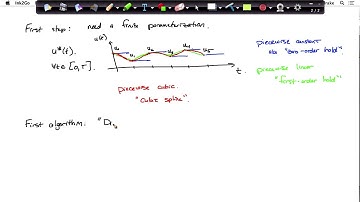 Ink2Go
First step: need a finite parameterization.
u(t)
u*(t).
∀t∈[0,T].
t.
piecewise constant
"zero-order hold"
piecewise linear
"first-order hold"
piecewise cubic:
"cubic spline".
First algorithm: "Di